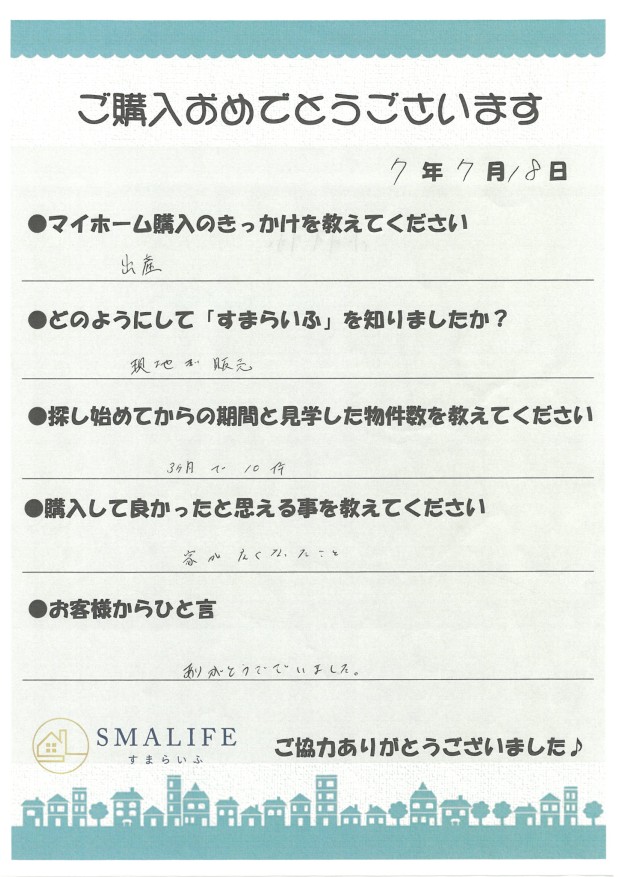 ご購入おめでとうございます
7年7月18日
●マイホーム購入のきっかけを教えてください
出産
●どのようにして「すまらいふ」を知りましたか？
現地が
●探し始めてからの期間と見学した物件数を教えてください
3ヶ月で10件
●購入して良かったと思える事を教えてください
家が くなったこと
●お客様からひと言
ありがとうございました。
SMALIFE
すまらいふ
ご協力ありがとうございました♪